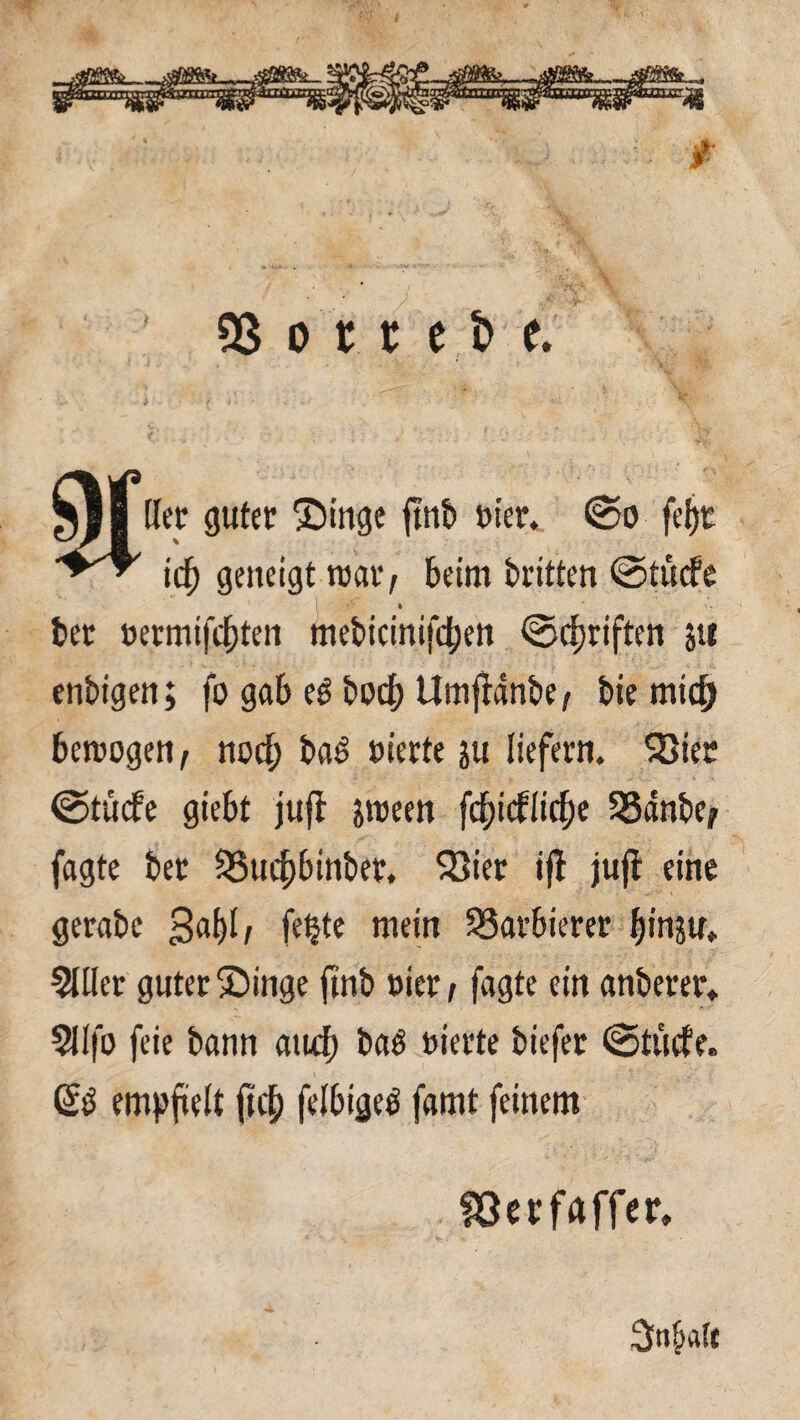 Vorrede.
Aller guter Dinge sind vier. So sehr
ich geneigt war, beim dritten Stücke
der vermischten medicinischen Schriften zu
endigen; so gab es doch Umstände, die mich
bewogen, noch das vierte zu liefern. Vier
Stücke giebt just zween schickliche Bände,
sagte der Buchbinder. Vier ist just eine
gerade Zahl, setzte mein Barbierer hinzu.
Aller guter Dinge sind vier, sagte ein anderer.
Also seie dann auch das vierte dieser Stücke.
Es empfielt sich selbiges samt seinem
Verfasser.
Inhalt